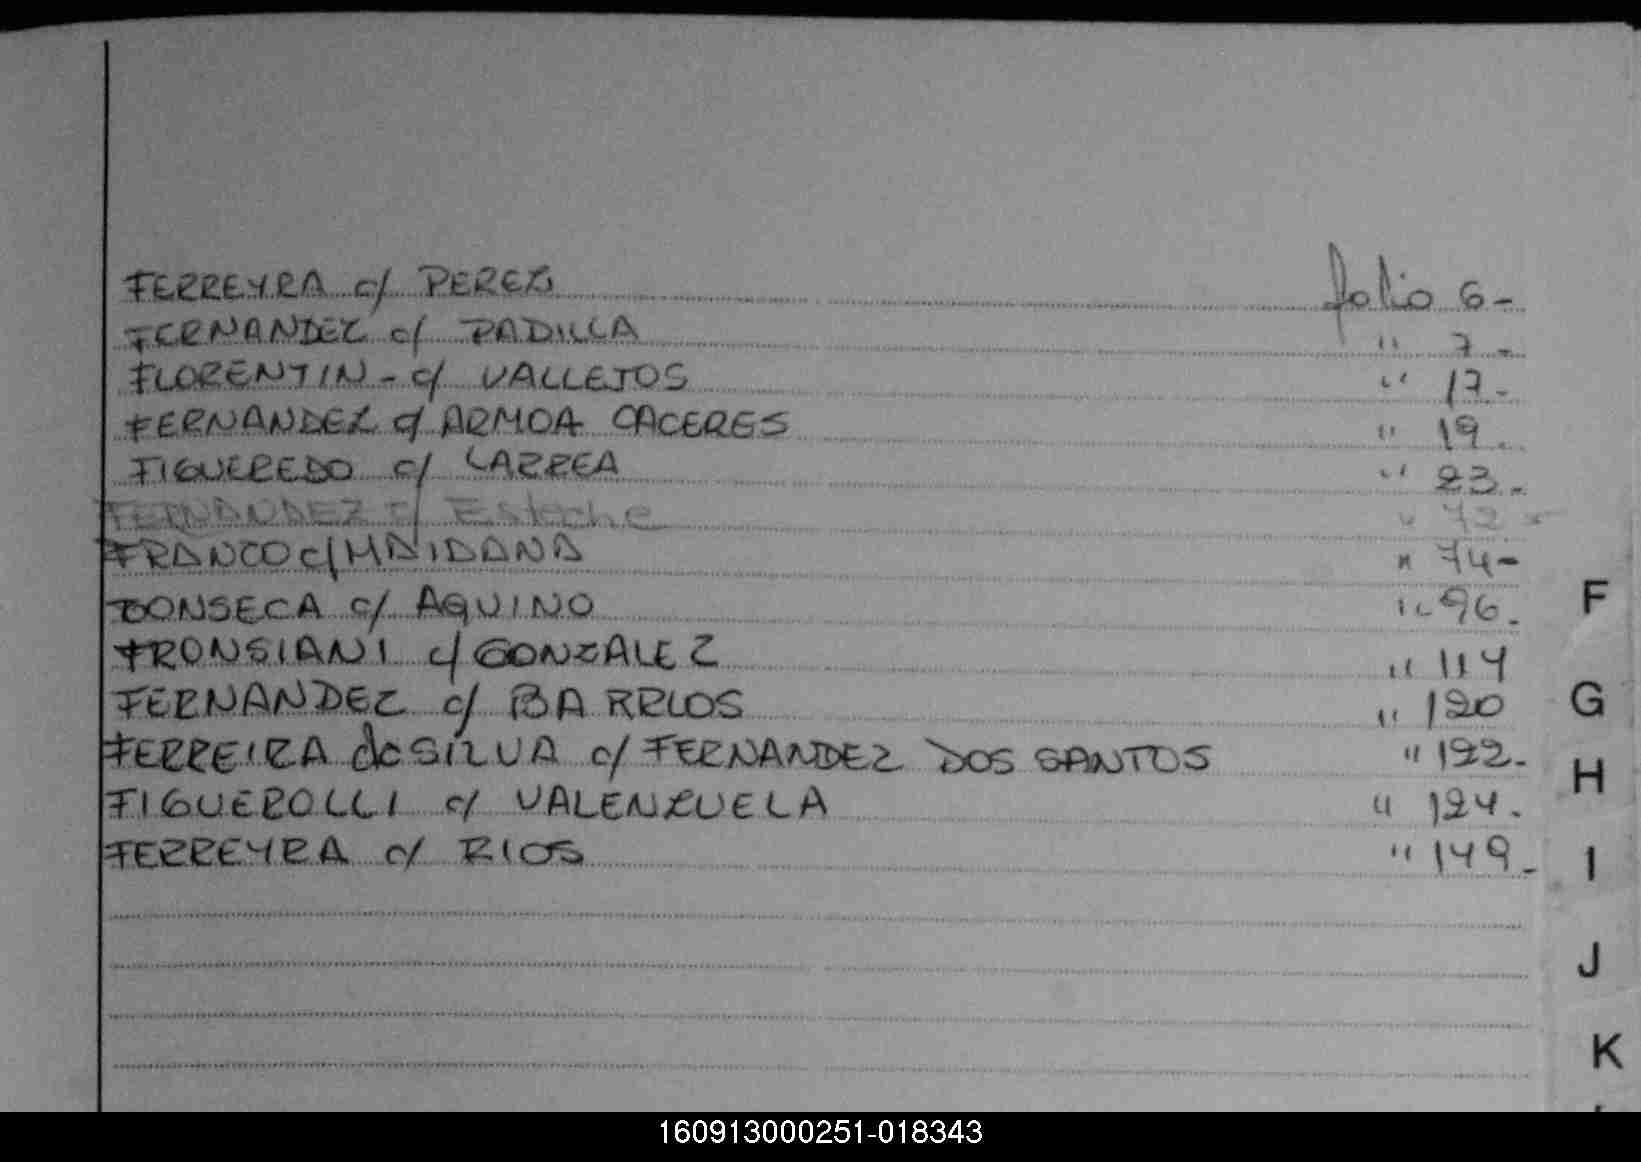 FERREYRA c/ PEREZ folio 6-
FERNANDEZ c/ PADILLA " 7-
FLORENTIN - c/ VALLEJOS " 17-
FERNANDEZ c/ ARMOA CACERES " 19.
FIGUEREDO c/ LARREA " 23-
FERNANDEZ c/ Esteche " 72-
FRANCO c/ MAIDANA " 74-
FONSECA c/ AQUINO " 96.
FRONSIANI c/ GONZALEZ " 114
FERNANDEZ c/ BARRIOS " 120
FERREIRA de SILVA c/ FERNANDEZ DOS SANTOS " 122-
FIGUEROLLI c/ VALENZUELA " 124.
FERREYRA c/ RIOS " 149-
F
G
H
I
J
K
160913000251-018343